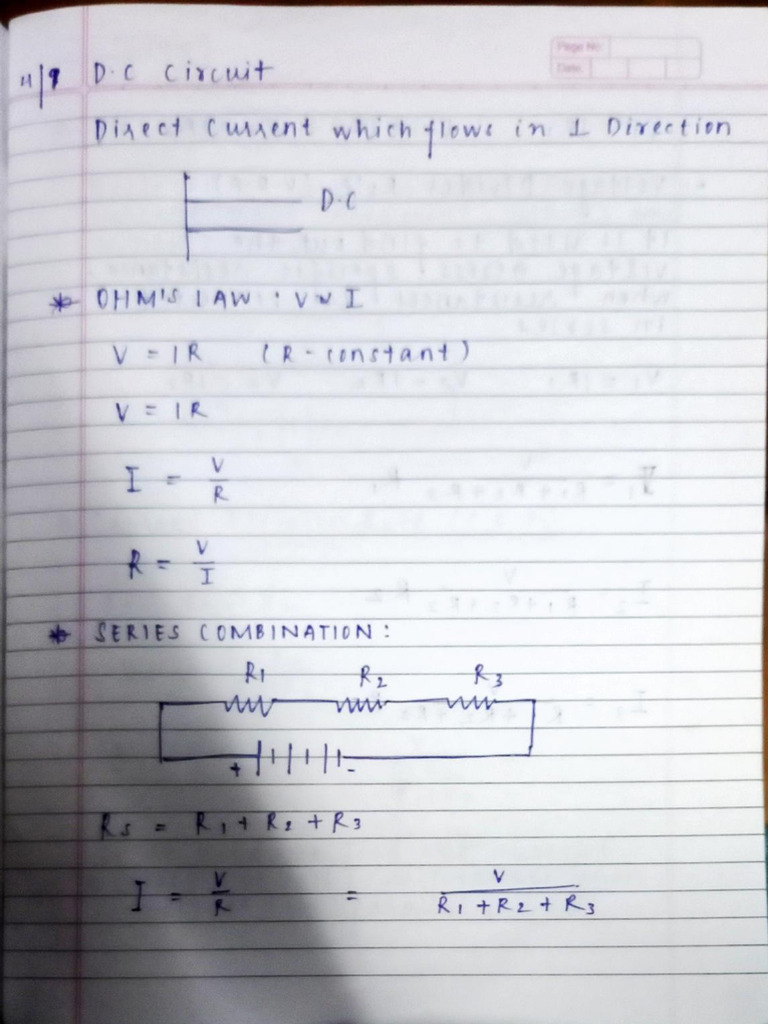 Page No:
Date:
11/9 D.C Circuit
Direct Current which flows in 1 Direction
D.C
* OHM'S LAW : V ∝ I
V = IR (R - constant)
V = IR
I = V/R
R = V/I
* SERIES COMBINATION :
R1 R2 R3
+ -
Rs = R1 + R2 + R3
I = V/R = V/(R1 + R2 + R3)